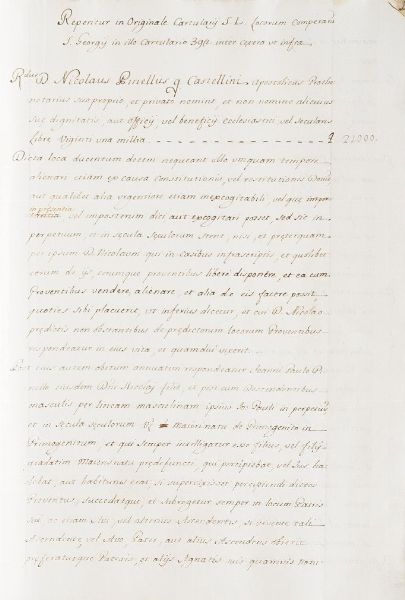 Reperitur in Originale Cartularij S. L. Locorum Comperarum
S. Georgij in illo Cartulario 394 inter cetera ut infra
R.dus D. Nicolaus Pinellus q Castellini Apostolicus Proto
notarius suo proprio, et privato nomine, et non nomine alicuius
sue dignitatis, aut officij, vel beneficij ecclesiastici vel secularis
Libre Viginti una millia 21000.
Dicta loca ducentum decem nequeant ullo unquam tempore
alienari etiam ex causa Constitutionis, vel restitutionis Dotium
aut qualibet alia urgentiore etiam inexcogitabili, vel que
in presentia
vel imposterum dici aut excogitari posset sed sic in
perpetuum et in secula seculorum stent, nisi, et preterquam
per ipsum D. Nicolaum qui in casibus infrascriptis, et quolibet
eorum de ijs, eorumque proventibus libere disponere, et ea cum
Proventibus vendere, alienare, et alia de eis facere possit
quoties sibi placuerit, ut inferius dicetur, et cui D. Nicolao
predictis non obstantibus de predictorum locorum Proventibus
respondeatur in eius vita, et quamdiu vixerit
Post eius autem obitum annuatim respondeatur Joanni Paulo Pi
nello eiusdem Dni Nicolaj filio, et post eum descendentibus
masculis per lineam masculinam ipsius Jo: Pauli in perpetuum
et in secula seculorum de maiori natu de Primogenito in
Primogenitum, et qui semper intelligatur esse filius, vel filij
maioris natu predefuncti, qui
aut habiturus erat si supervixisset percipiendi dictos
Proventus, succedatque, et subrogetur semper in locum Patris
sui, ac etiam Avi, vel alterius Ascendentis, si vivente tali
Ascendente, vel Avo, Pater, aut alius Ascendens obierit
preferaturque Patruis, et alijs Agnatis suis quamvis